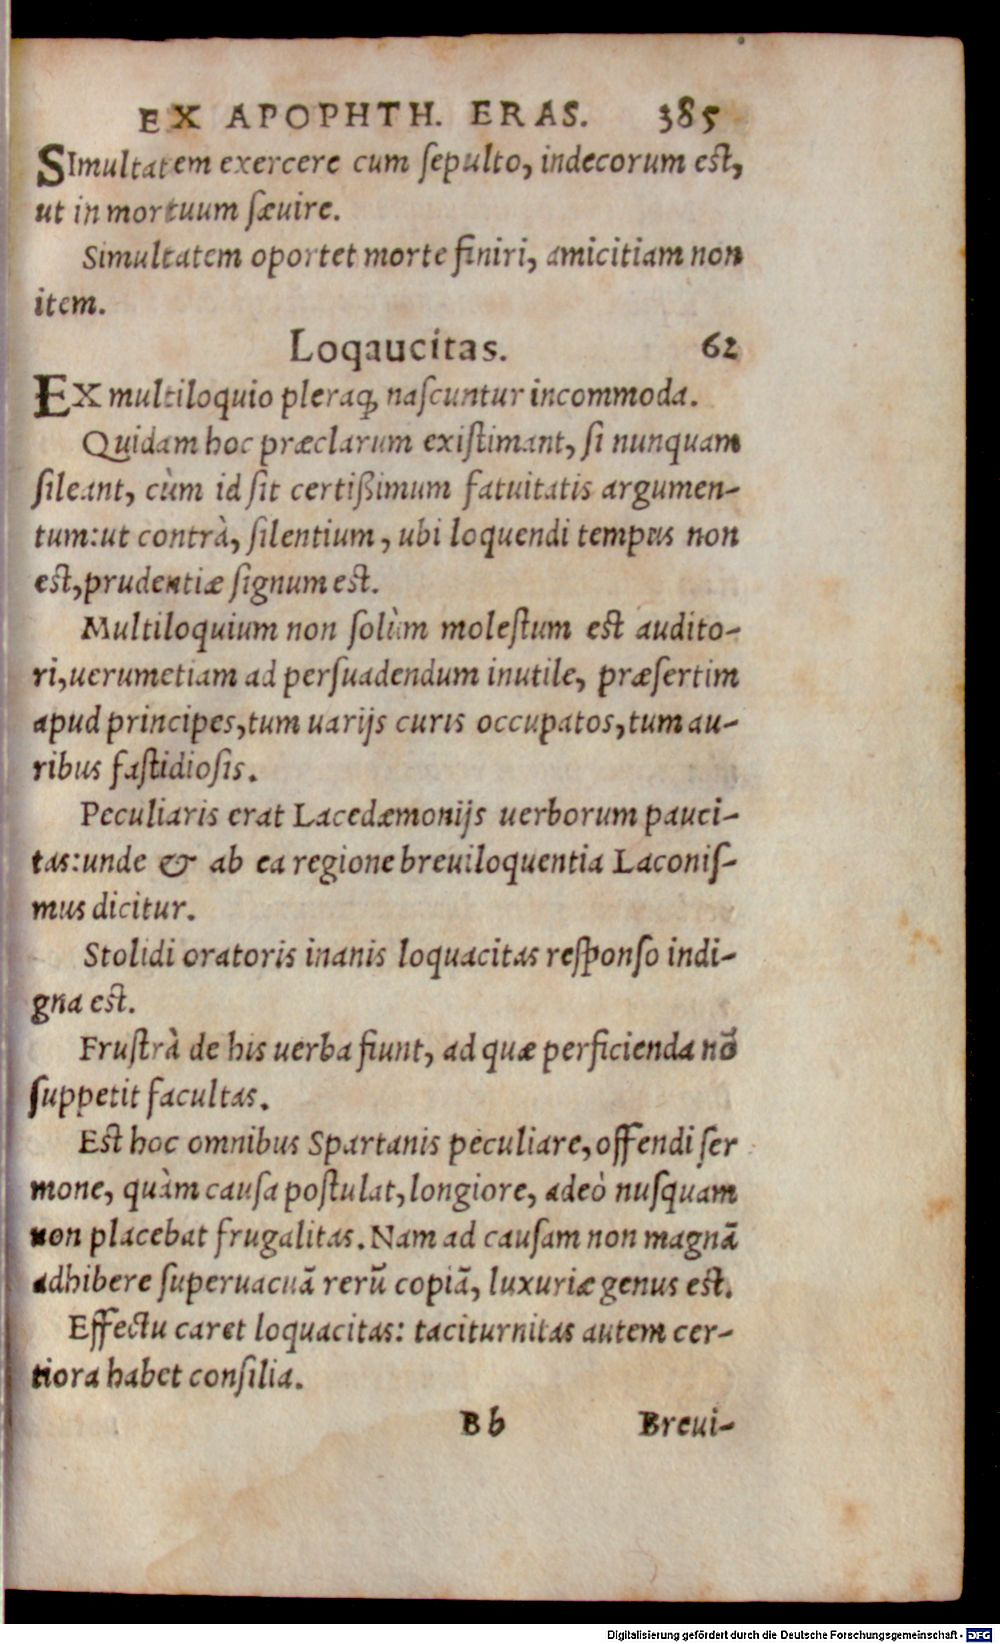 EX APOPHTH. ERAS. 385
SImultatem exercere cum ſepulto, indecorum est,
ut in mortuum ſæuire.
Simultatem oportet morte finiri, amicitiam non
item.
Loqaucitas. 62
EX multiloquio pleraq; naſcuntur incommoda.
Quidam hoc præclarum exiſtimant, ſi nunquam
ſileant, cùm id ſit certißimum fatuitatis argumen-
tum: ut contrà, ſilentium, ubi loquendi tempus non
est, prudentiæ ſignum est.
Multiloquium non ſolùm moleſtum est audito-
ri, uerumetiam ad perſuadendum inutile, præſertim
apud principes, tum uarijs curis occupatos, tum au-
ribus faſtidioſis.
Peculiaris erat Lacedæmonijs uerborum pauci-
tas: unde & ab ea regione breuiloquentia Laconiſ-
mus dicitur.
Stolidi oratoris inanis loquacitas reſponſo indi-
gna est.
Fruſtrà de his uerba fiunt, ad quæ perficienda nõ
ſuppetit facultas.
Est hoc omnibus Spartanis peculiare, offendi ſer
mone, quàm cauſa poſtulat, longiore, adeò nuſquam
non placebat frugalitas. Nam ad cauſam non magnã
adhibere ſuperuacuã rerũ copiã, luxuriæ genus est.
Effectu caret loquacitas: taciturnitas autem cer-
tiora habet conſilia.
Bb Breui-
Digitalisierung gefördert durch die Deutsche Forschungsgemeinschaft - DFG